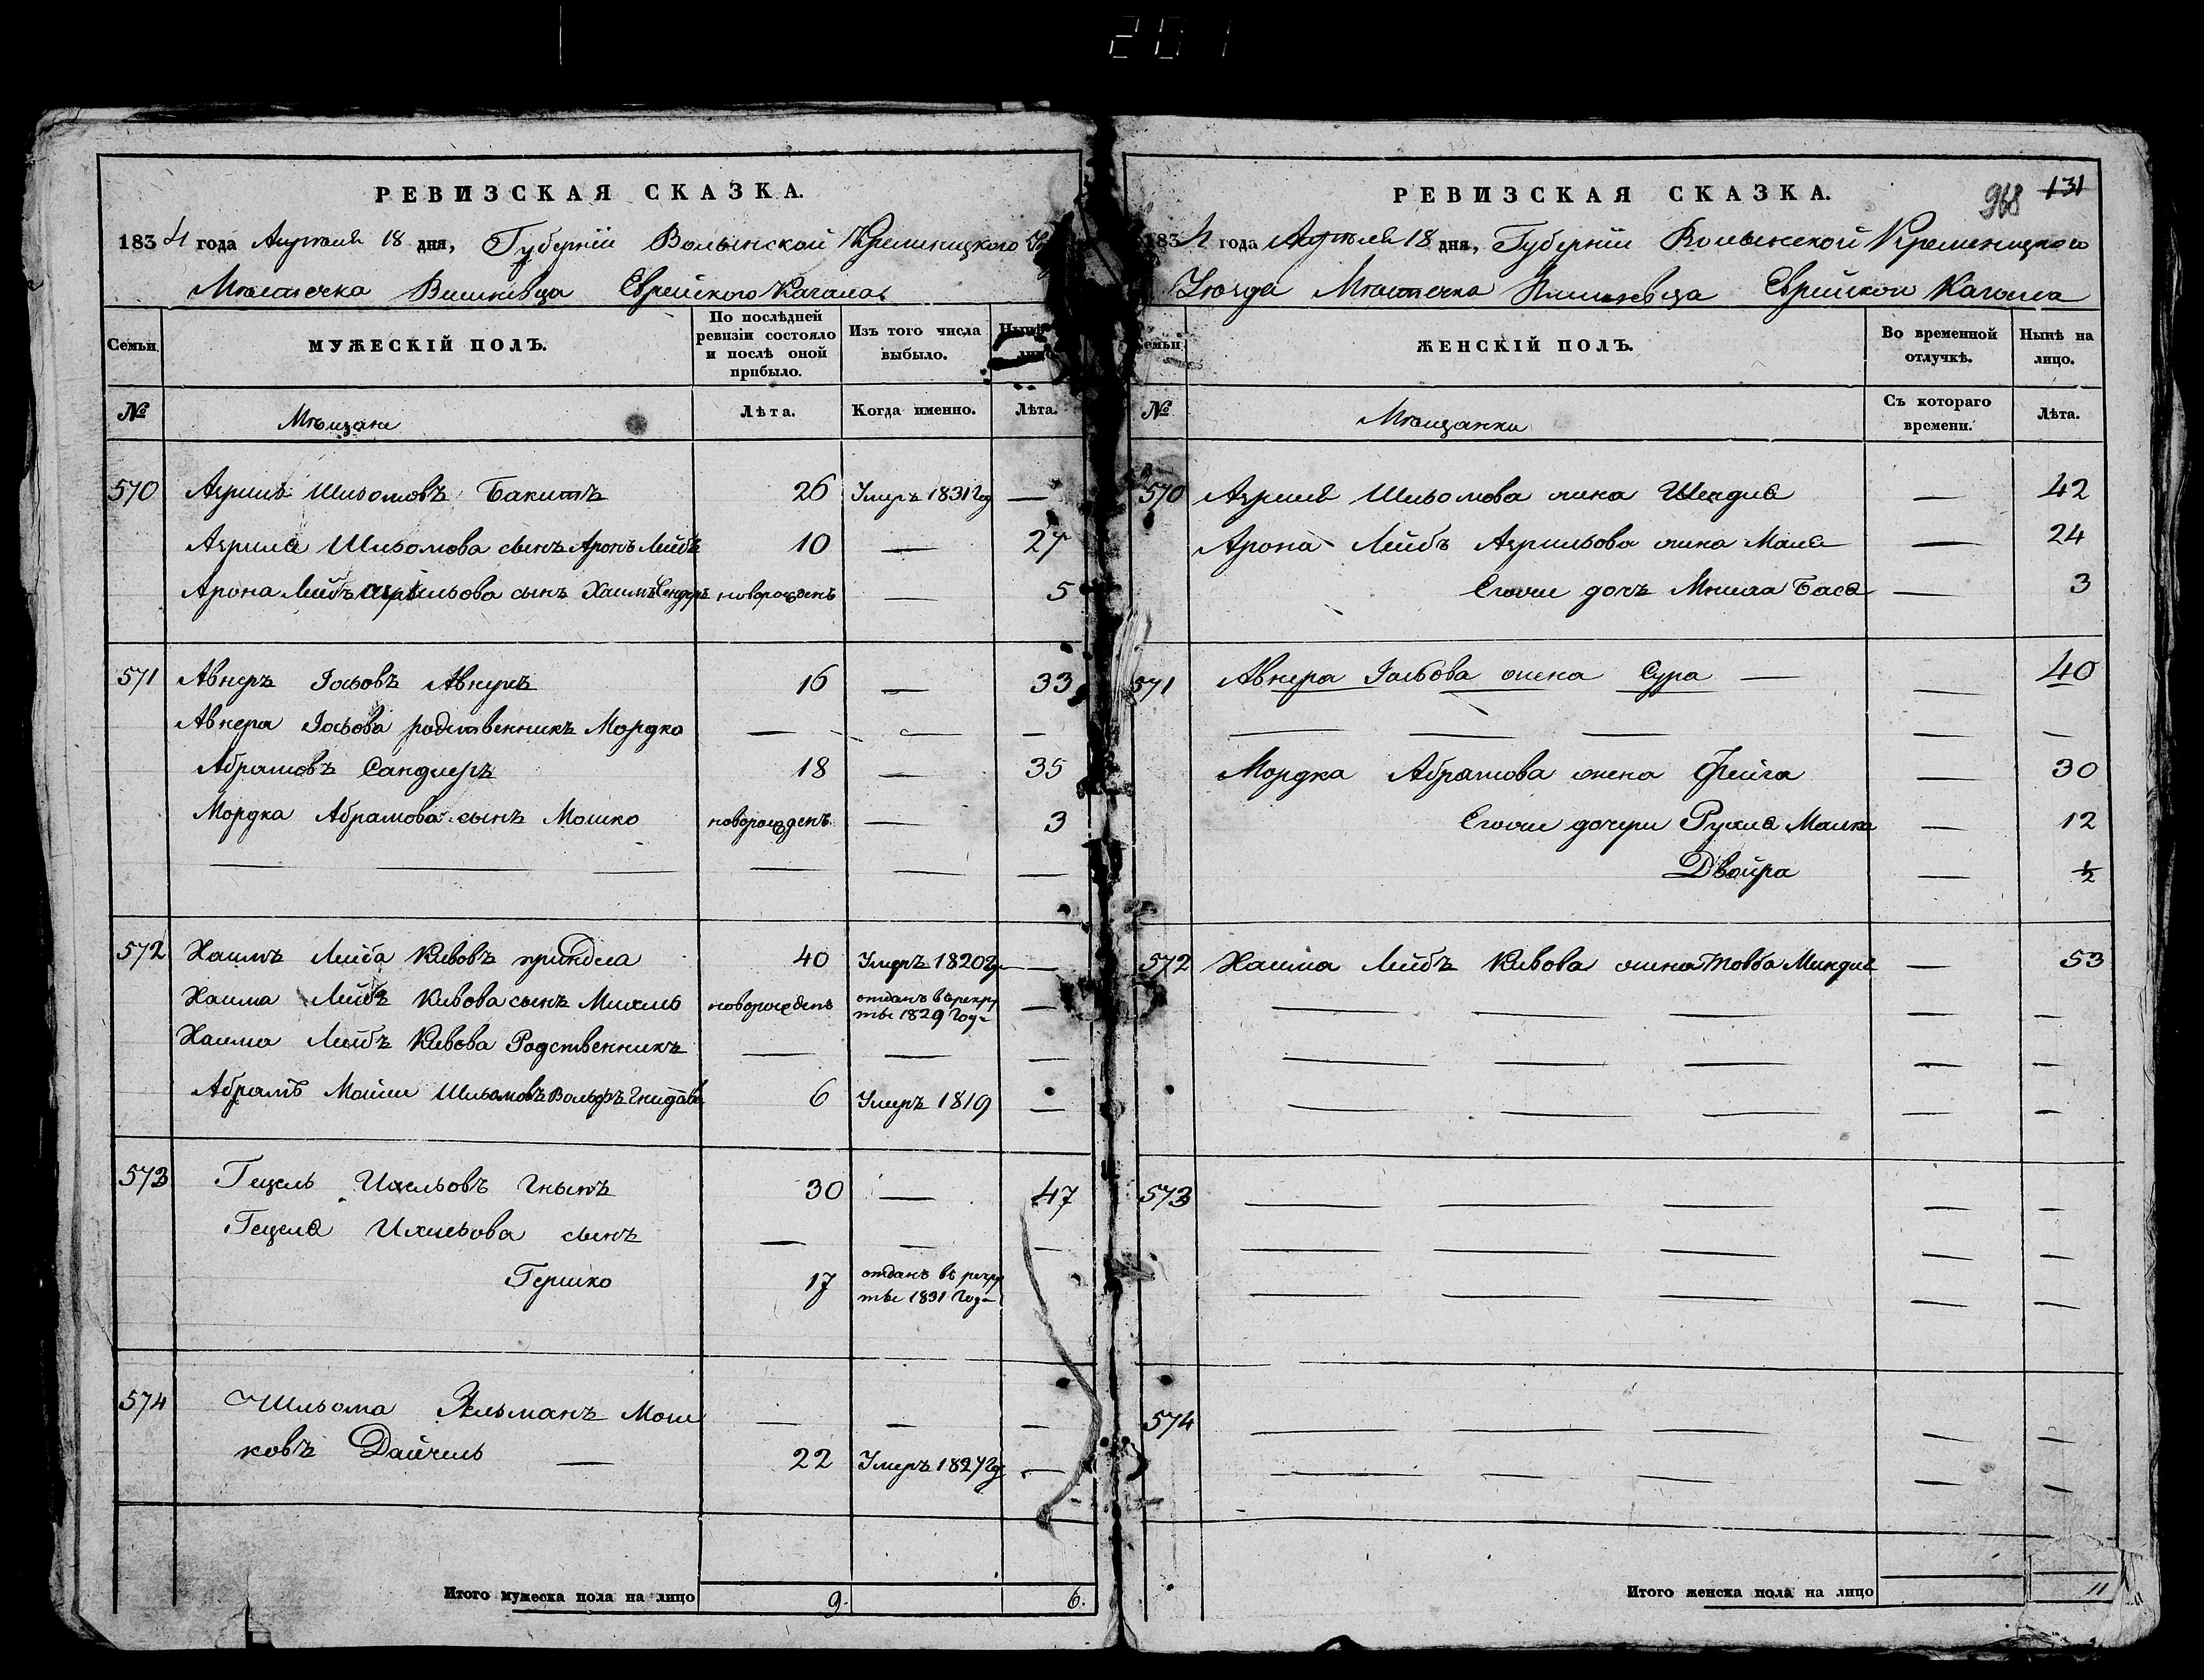 201
РЕВИЗСКАЯ СКАЗКА.
1834 года Апреля 18 дня, Губерніи Волынской Кременецкого
Мѣстечка Вишневца Еврейского Кагала
Семьи
МУЖЕСКІЙ ПОЛЪ.
По послѣдней ревизіи состояло и послѣ оной прибыло.
Изъ того числа выбыло.
Нынѣ
№
Мѣщане
Лѣта.
Когда именно.
Лѣта.
570 Азриль Шльомовъ 26 Умеръ 1831 год —
Азриля Шльомова сынъ Аронъ Лейбъ 10 — 27
Арона Лейбъ Азрильова сынъ Хаимъ Сендеръ новорожденъ — 5
571 Авнеръ Іосьовъ Авнукъ 16 — 33
Авнера Іосьова родственникъ Мордко — — —
Абрамовъ Сандлеръ 18 — 35
Мордка Абрамова сынъ Мошко новорожденъ — 3
— — — — — —
572 Хаимъ Лейба Кивовъ 40 Умеръ 1820 —
Хаима Лейбъ Кивова сынъ Михель новорожденъ отданъ въ рекру
ты 1829 год —
Хаима Лейбъ Кивова Родственникъ — — —
Абрамъ Мойше Шльомовъ Вольфъ 6 Умеръ 1819 —
573 Гецель Ихельовъ 30 — 47
Гецеля Ихельова сынъ — — —
Гершко 17 отданъ въ рекру
ты 1831 год
574 Шльома Зельманъ Мош — — —
ковъ Дайчель — 22 Умеръ 1827 —
Итого мужеска пола на лицо 9. 6.
РЕВИЗСКАЯ СКАЗКА.
968 131
1834 года Апреля 18 дня, Губерніи Волынской Кременецкого
Уѣзда Мѣстечка Вишневца Еврейской Кагала
Семьи
ЖЕНСКІЙ ПОЛЪ.
Во временной отлучкѣ.
Нынѣ на лицо.
№
Мѣщанки
Съ котораго времени.
Лѣта.
570 Азриля Шльомова жена Шендля — 42
Арона Лейбъ Азрильова жена Маля — 24
Егоже дочь Баса — 3
571 Авнера Іосьова жена Сура — — 40
— — — — —
Мордка Абрамова жена Фейга — 30
Егоже дочери Рухля Малка — 12
Двойра — ½
572 Хаима Лейбъ Кивова жена Товба Миндля — 53
— — — — —
— — — — —
— — — — —
573 — — — — —
— — — — —
— — — — —
574 — — — — —
— — — — —
Итого женска пола на лицо 11